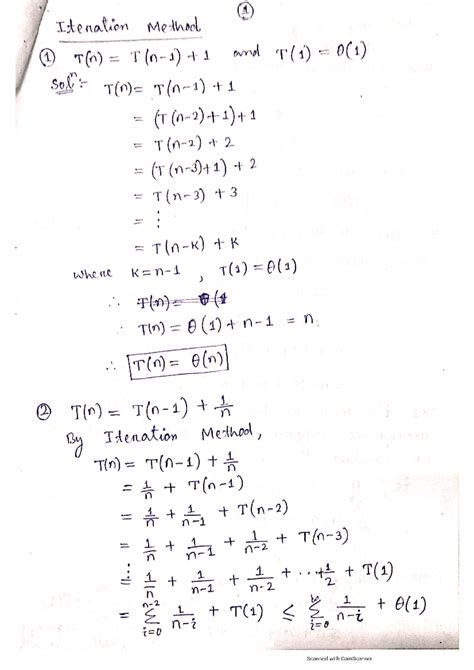 ①
Iteration Method
① T(n) = T(n-1) + 1 and T(1) = θ(1)
Solⁿ:- T(n) = T(n-1) + 1
= (T(n-2)+1)+1
= T(n-2) + 2
= (T(n-3)+1) + 2
= T(n-3) + 3
= ⋮
= T(n-K) + K
where K = n-1 , T(1) = θ(1)
∴ T(n) = θ(1
∴ T(n) = θ(1) + n-1 = n
∴ T(n) = θ(n)
② T(n) = T(n-1) + 1/n
By Iteration Method,
T(n) = T(n-1) + 1/n
= 1/n + T(n-1)
= 1/n + 1/(n-1) + T(n-2)
= 1/n + 1/(n-1) + 1/(n-2) + T(n-3)
⋮
= 1/n + 1/(n-1) + 1/(n-2) + ... + 1/2 + T(1)
= Σ_{i=0}^{n-2} 1/(n-i) + T(1) ≤ Σ_{i=0}^{∞} 1/(n-i) + θ(1)
Scanned with CamScanner